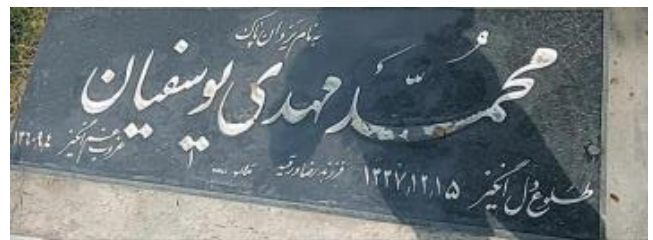 به نام یزدان پاک
محمد مهدی یوسفیان
طلوع دل انگیز ۱۳۳۷,۱۲,۱۵ فرزند رضا و رقیه غروب غم انگیز